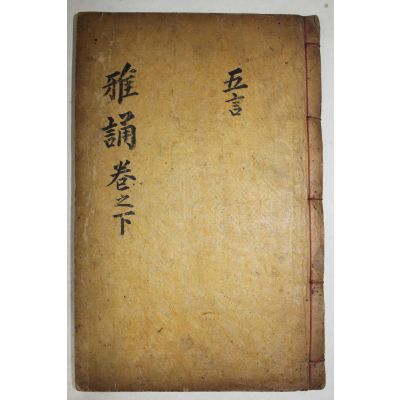 五言
雅誦卷之下